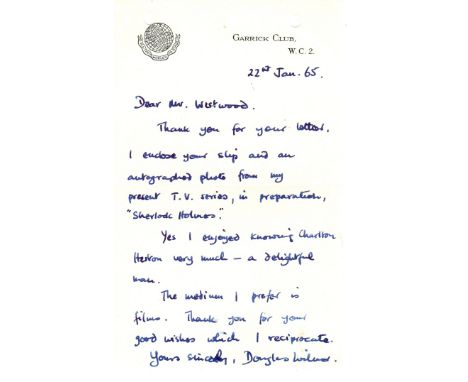 GARRICK CLUB,
W.C.2.
22nd Jan. 65.
Dear Mr. Westwood.
Thank you for your letter.
I enclose your slip and an
autographed photo from my
present T.V. series, in preparation,
"Sherlock Holmes".
Yes I enjoyed knowing Charlton
Heston very much – a delightful
man.
The medium I prefer is
films. Thank you for your
good wishes which I reciprocate.
Yours sincerely, Douglas Wilmer.